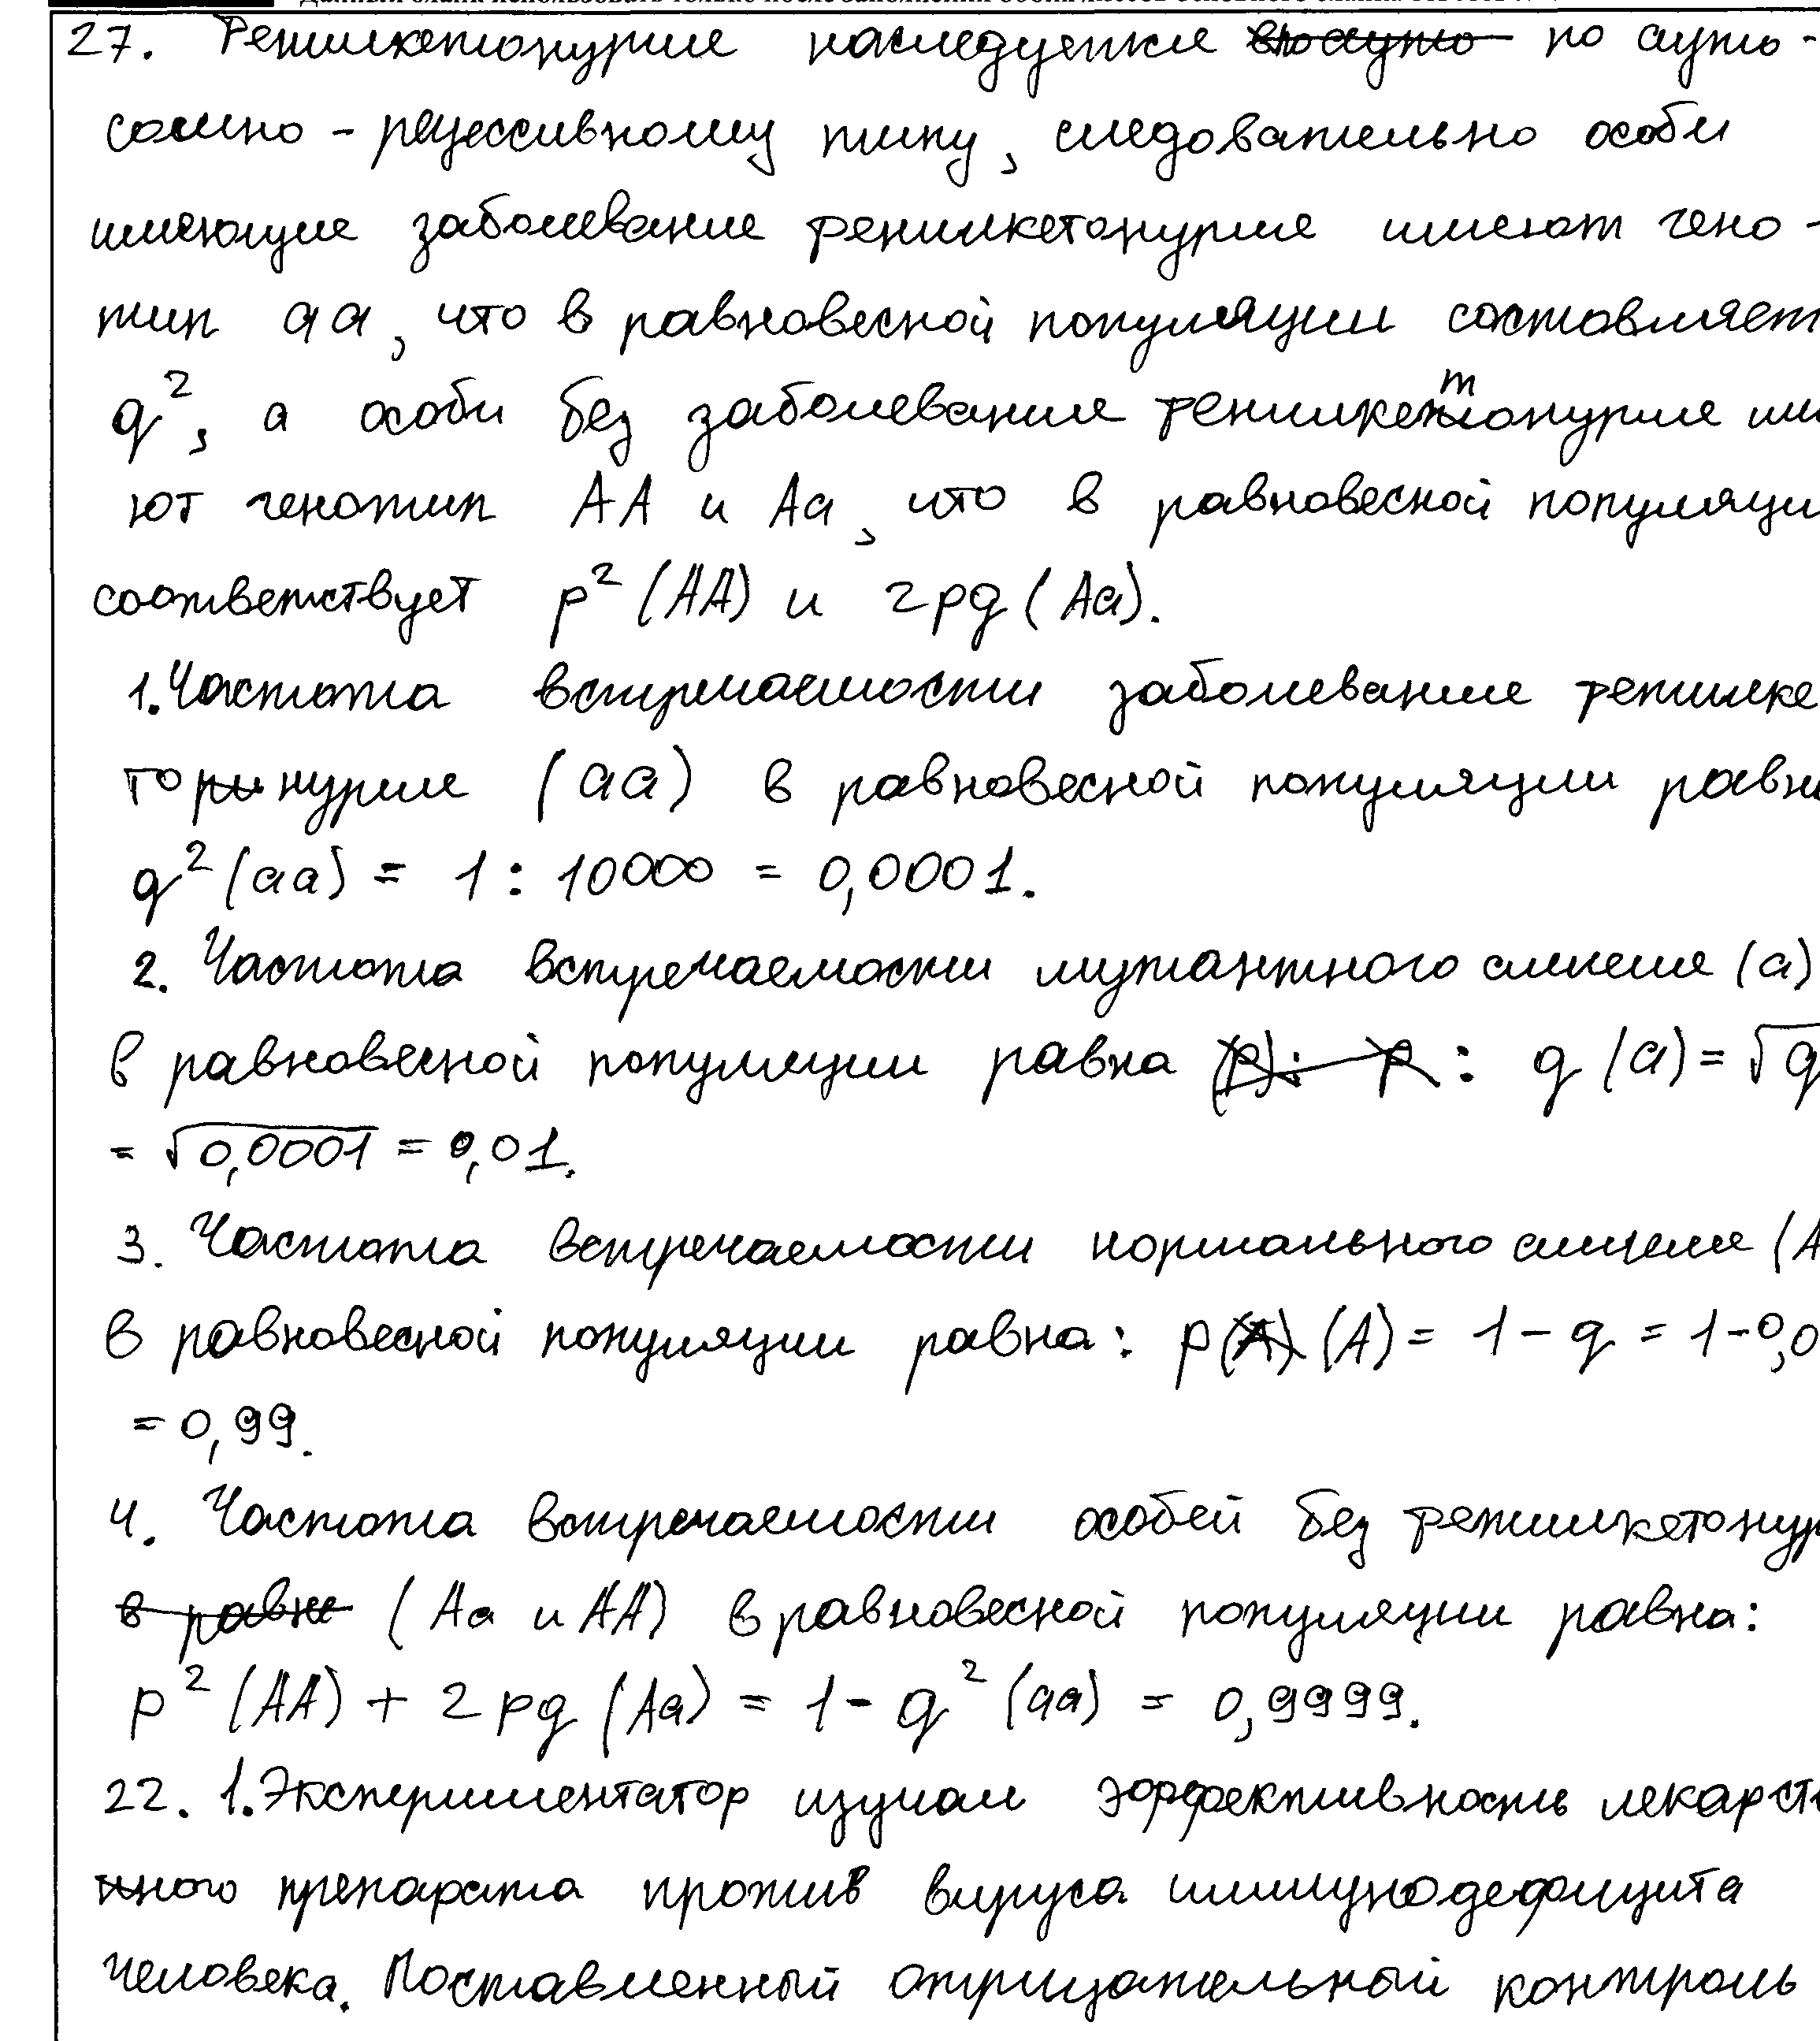 27. Фенилкетонурия наследуется по ауто-
сомно - рецессивному типу, следовательно особи
имеющие заболевание фенилкетонурия имеют гено-
тип aa, что в равновесной популяции составляет
q², а особи без заболевания фенилкетонурия им
ют генотип AA и Aa, что в равновесной популяци
соответствует p² (AA) и 2pq (Aa).
1. Частота встречаемости заболевания фенилке
тонурия (aa) в равновесной популяции равн
q² (aa) = 1 : 10000 = 0,0001.
2. Частота встречаемости мутантного аллеля (a)
в равновесной популяции равна : q (a) = √q
= √0,0001 = 0,01.
3. Частота встречаемости нормального аллеля (A
в равновесной популяции равна: p (A) = 1 - q = 1 - 0,0
= 0,99.
4. Частота встречаемости особей без фенилкетонур
(Aa и AA) в равновесной популяции равна:
p² (AA) + 2pq (Aa) = 1 - q² (aa) = 0,9999.
22. 1. Экспериментатор изучал эффективность лекарст
нного препарата против вируса иммунодефицита
человека. Поставленный отрицательный контроль